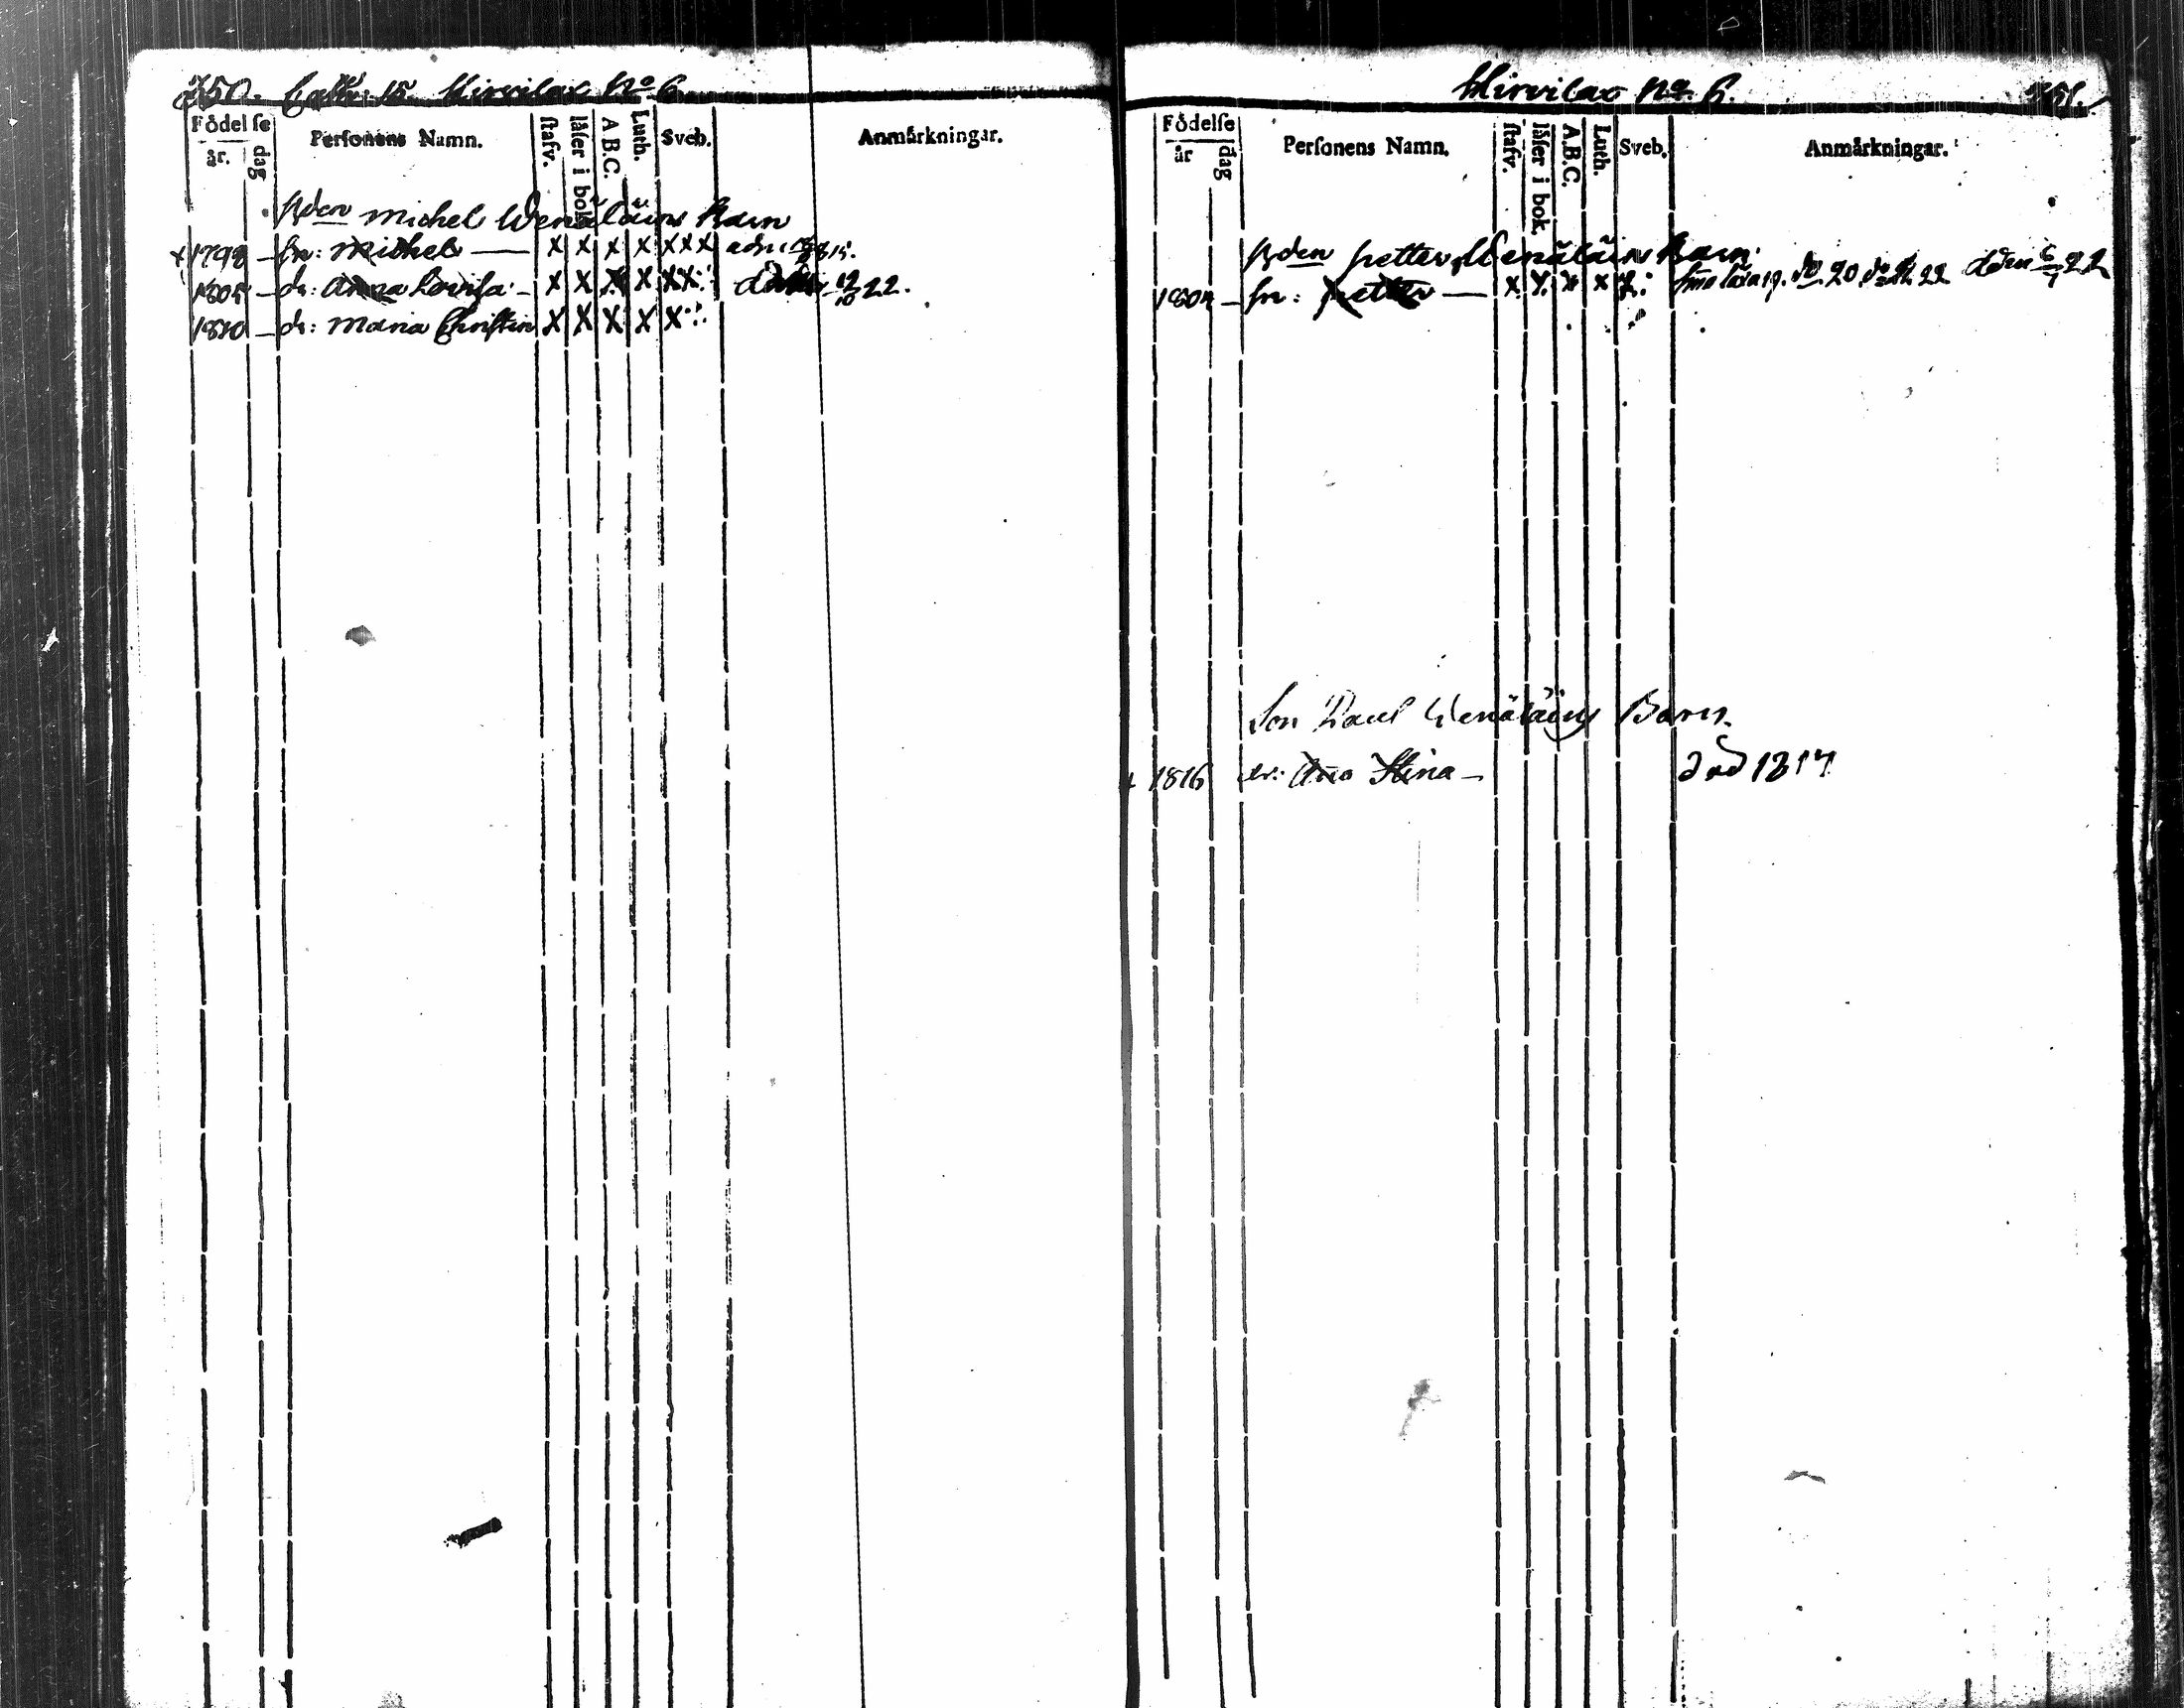 350. Hirvilax No 6.
Födelse
år. dag
Personens Namn.
stafv.
läser i bok
A B.C.
Luth.
Sveb.
Anmärkningar.
Bden Michel Wenäläins Barn
+ 1798 – sn: Michel — x x x x xxx
1805 – dr: Anna Lovisa – x x x x xx 12/10 22.
1810 – dr: Maria Christin x x x x x
Hirvilax No. 6. 351.
Födelse
år dag
Personens Namn.
stafv.
läser i bok
A.B.C.
Luth.
Sveb.
Anmärkningar.
Bden Petter Wenäläins Barn.
1804 – sn: Petter — x x x x x
Son Paul Wenäläins Barn.
+ 1816 dr: Aña Stina – död 1817